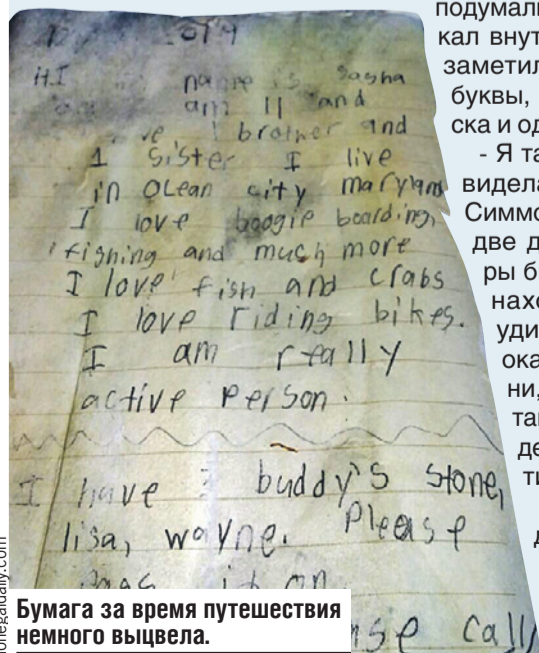 HI name is Sasha
am 11 and
brother and
1 sister I live
in Ocean city maryland
I love boogie boarding,
fishing and much more
I love fish and crabs
I love riding bikes.
I am really
active person.
I have buddy's stone,
lisa, wayne. Please
it on
call
Бумага за время путешествия
немного выцвела.
подумали
кал внут
заметил
буквы,
ска и од
- Я та
видела
Симмо
две д
ры б
нахо
уди
ока
ни,
та
де
ти
д
onegaldaily.com